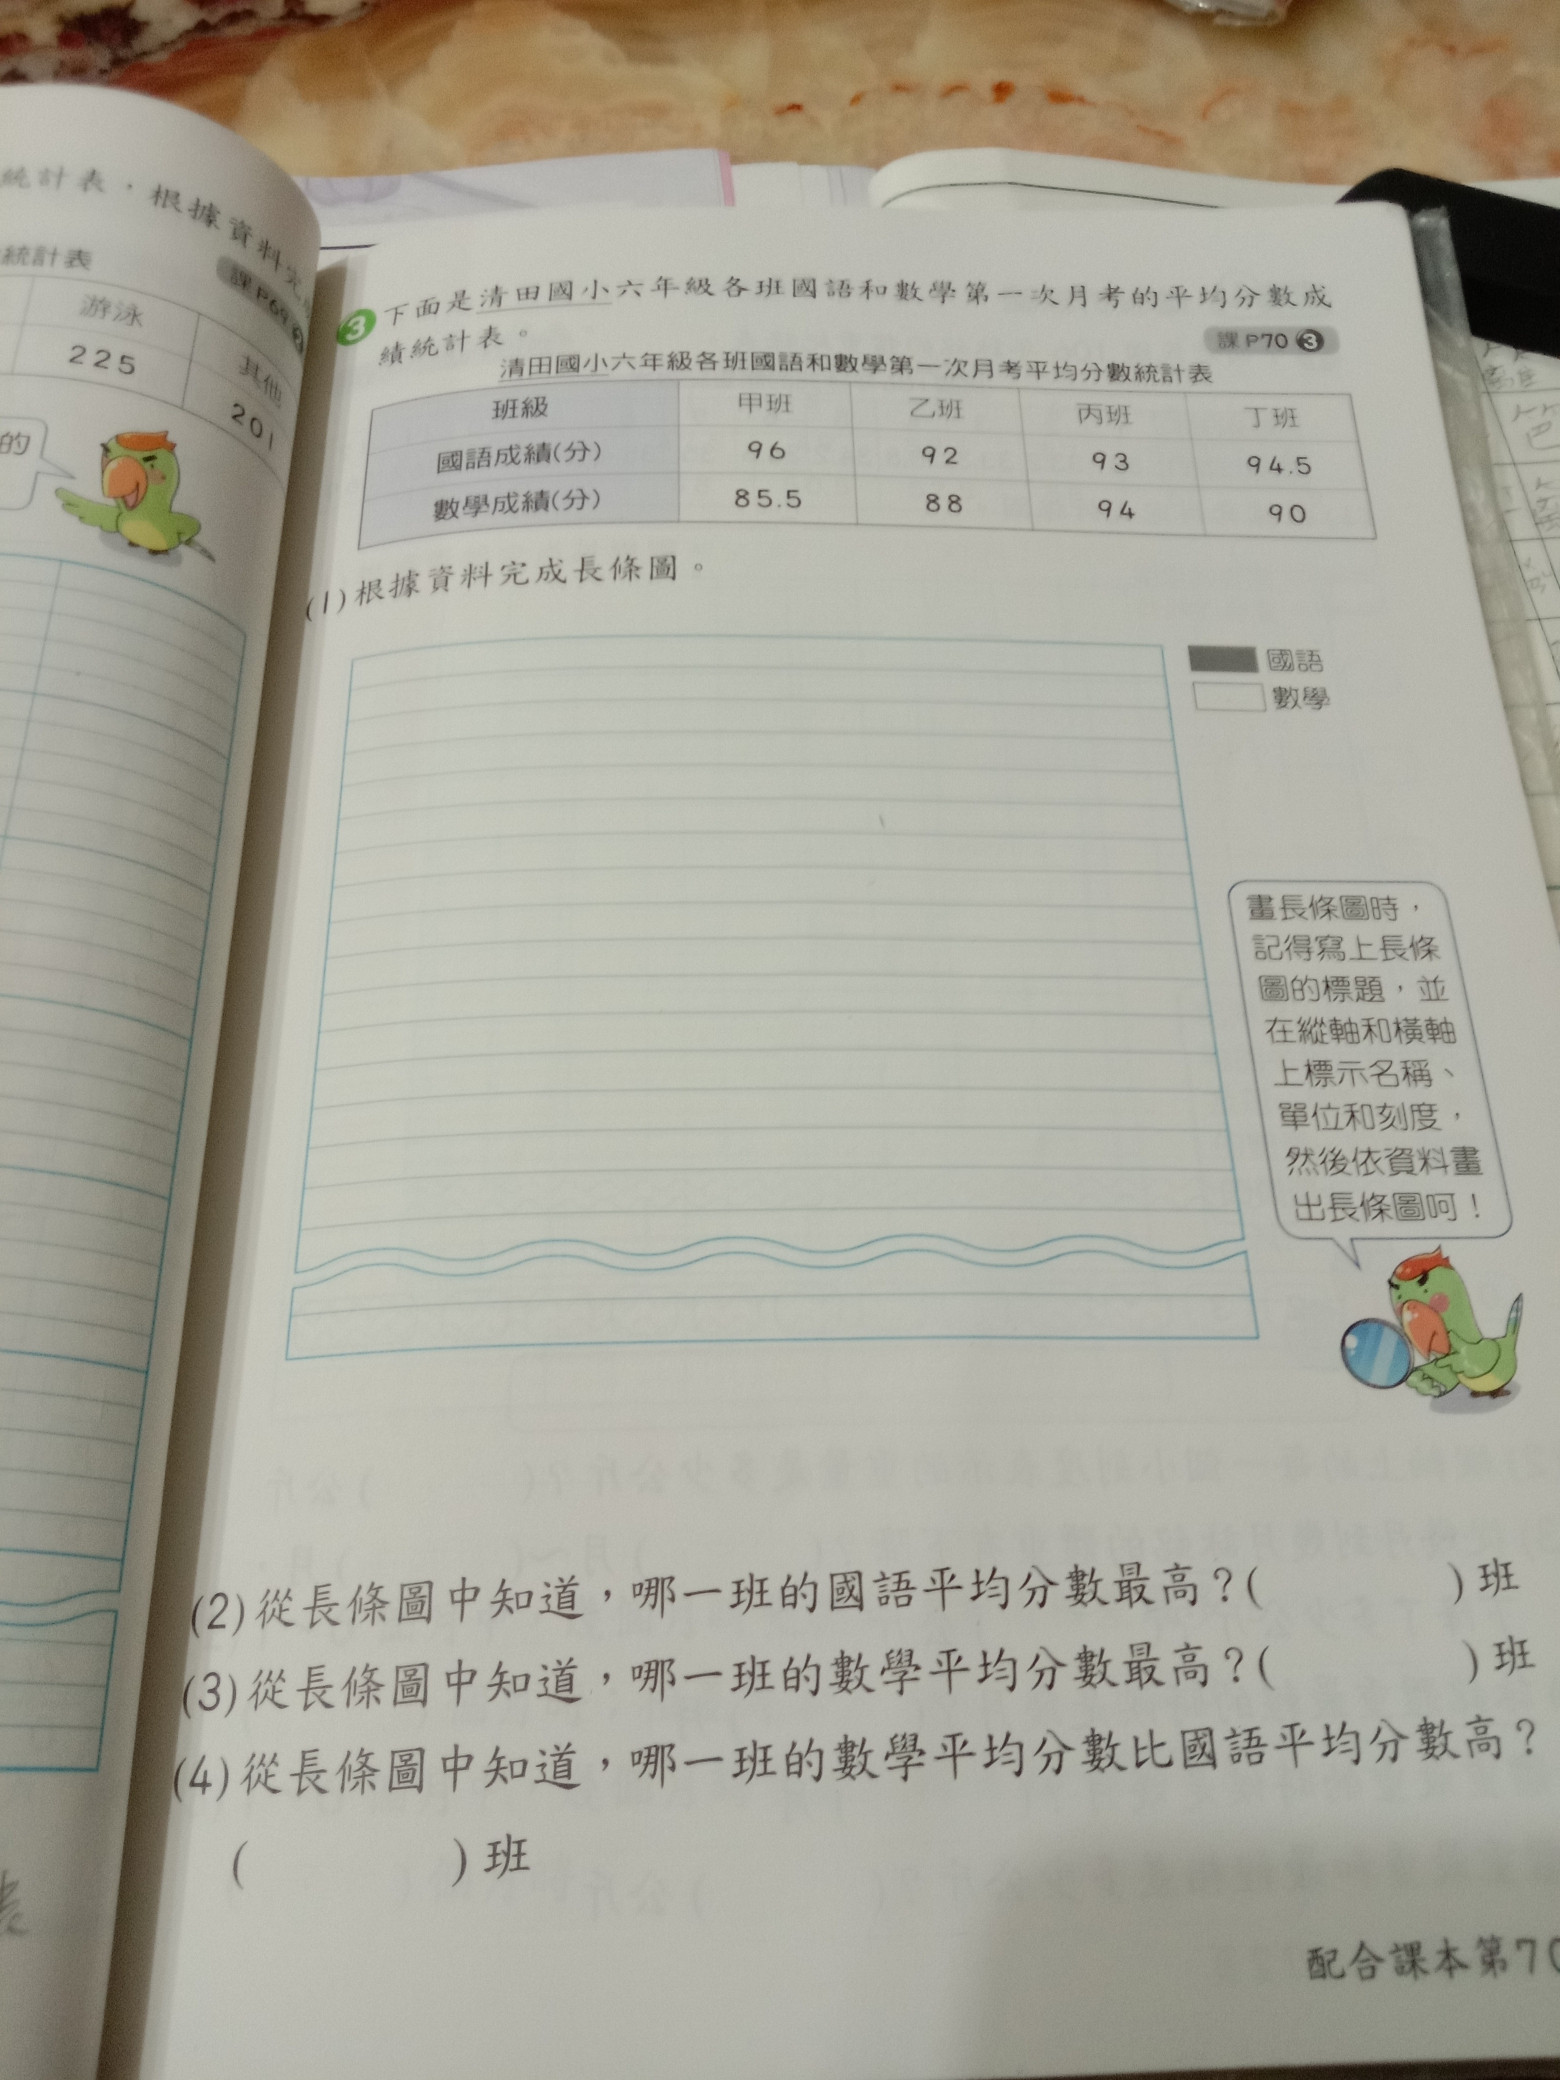 統計表，根據資料完
課P69
統計表
游泳
其他
225
201
的
3 下面是清田國小六年級各班國語和數學第一次月考的平均分數成
績統計表。
課P70 3
清田國小六年級各班國語和數學第一次月考平均分數統計表
班級 甲班 乙班 丙班 丁班
國語成績(分) 96 92 93 94.5
數學成績(分) 85.5 88 94 90
(1)根據資料完成長條圖。
國語
數學
畫長條圖時，
記得寫上長條
圖的標題，並
在縱軸和橫軸
上標示名稱、
單位和刻度，
然後依資料畫
出長條圖呵！
(2)從長條圖中知道，哪一班的國語平均分數最高？( )班
(3)從長條圖中知道，哪一班的數學平均分數最高？( )班
(4)從長條圖中知道，哪一班的數學平均分數比國語平均分數高？
( )班
配合課本第70